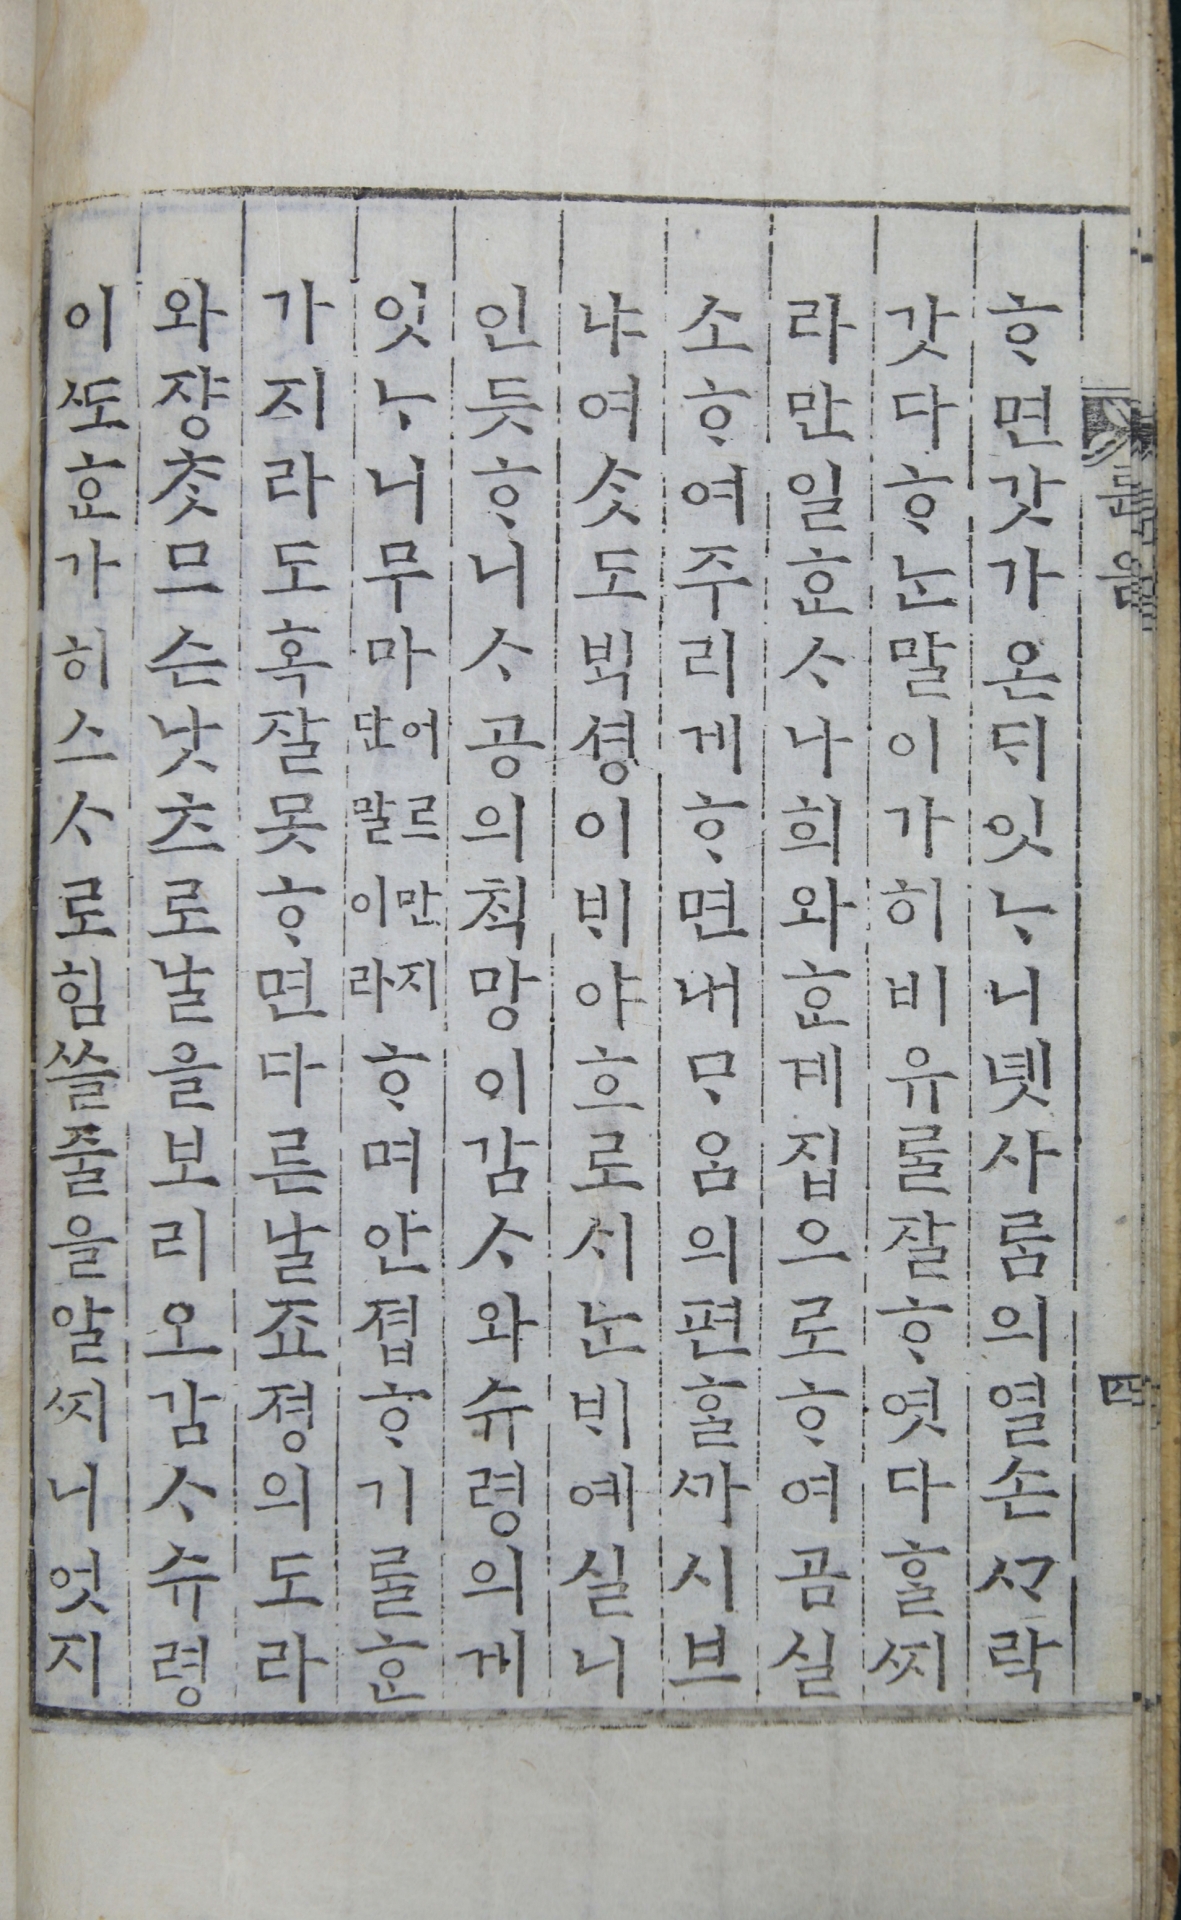 ᄒᆞ면갓가온ᄃᆡ잇ᄂᆞ니녯사ᄅᆞᆷ의열손ᄭᆞ락
갓다ᄒᆞᄂᆞᆫ말이가히비유ᄅᆞᆯ잘ᄒᆞ엿다ᄒᆞᆯ씨
라만일ᄒᆞᆫᄉᆞ나희와ᄒᆞᆫ계집으로ᄒᆞ여곰실
소ᄒᆞ여주리게ᄒᆞ면내ᄆᆞ움의편ᄒᆞᆯᄭᅡ시브
냐여ᄉᆞᆺ도ᄇᆡᆨ셩이ᄇᆡ야흐로ᄉᆡᄂᆞᆫᄇᆡ예실니
인듯ᄒᆞ니ᄉᆞ공의ᄎᆡᆨ망이감ᄉᆞ와슈령의게
잇ᄂᆞ니무마어르만지단말이라ᄒᆞ며안졉ᄒᆞ기ᄅᆞᆯᄒᆞᆫ
가지라도혹잘못ᄒᆞ면다른날죠졍의도라
와쟝ᄎᆞᆺ므슨낫츠로날을보리오감ᄉᆞ슈령
이ᄯᅩᄒᆞᆫ가히스ᄉᆞ로힘쓸줄을알씨니엇지
四